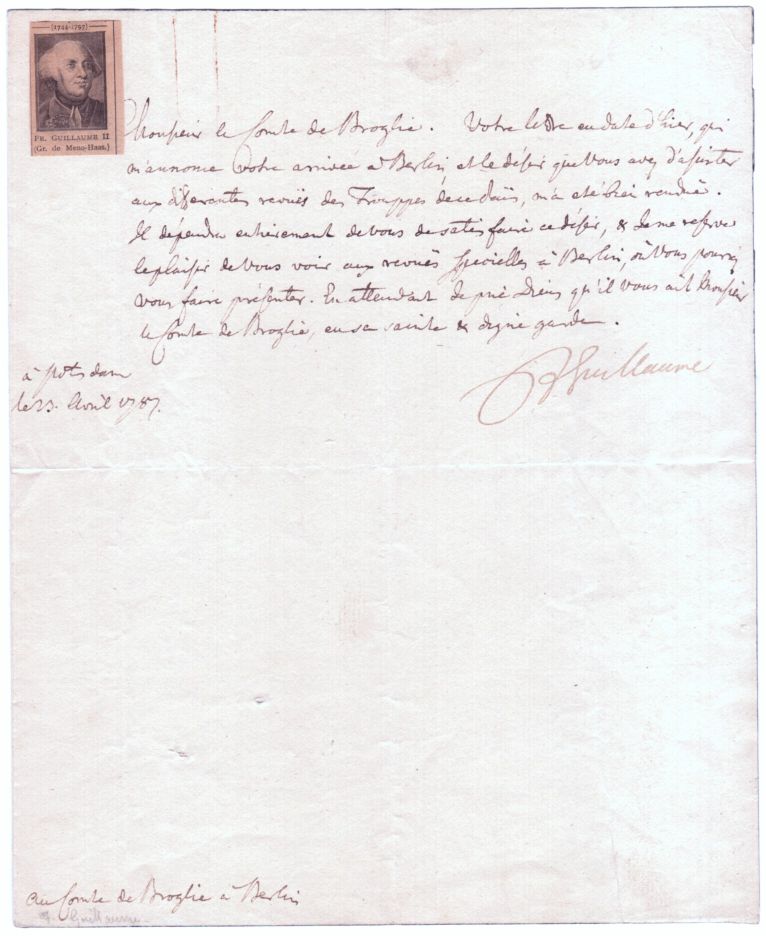 (1744-1797)
FR. GUILLAUME II
(Gr. de Meno-Haas.)
Monsieur le Comte de Broglie. Votre lettre en date d'hier, qui
m'annonce votre arrivée à Berlin, et le désir que Vous avez d'assister
aux differentes revuës des Trouppes de ce païs, m'a eté bien renduë.
Il dépendra entierement de vous de satisfaire ce désir, & Je me reserve
le plaisir de Vous voir aux revuës specielles à Berlin, où Vous pourrez
vous faire présenter. En attendant Je prie Dieu qu'il Vous ait Monsieur
le Comte de Broglie, en sa sainte & digne garde.
à Potsdam
le 23. Avril 1787.
FGuillaume
au Comte de Broglie à Berlin
F. Guillaume